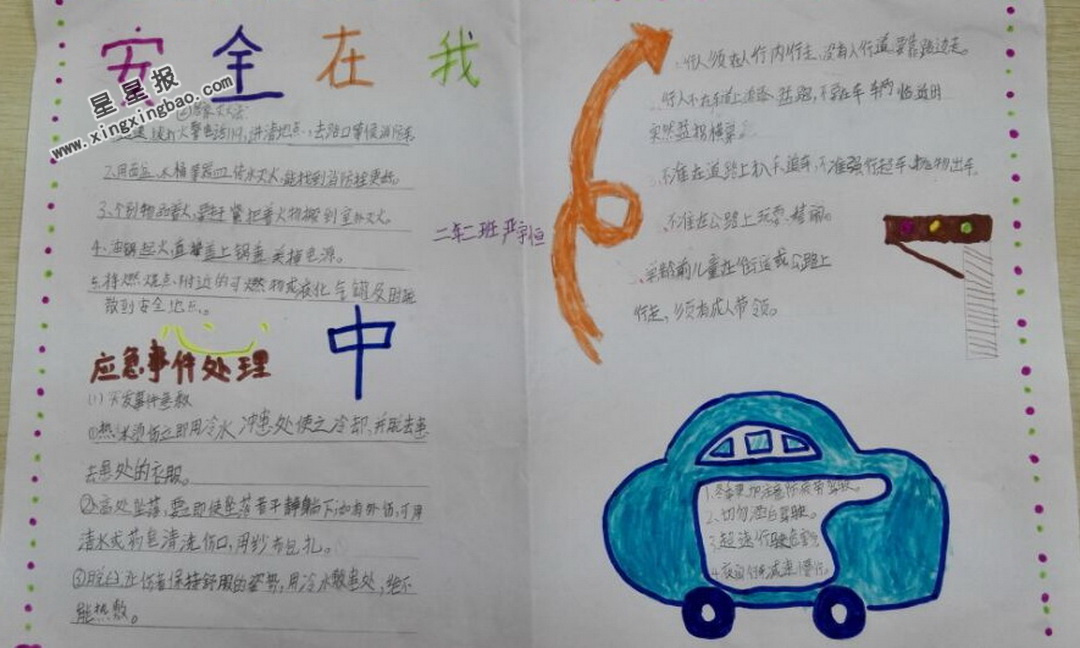 安全在我
星星报
www.xingxingbao.com
火警电话119,讲清地点,去路口等候消防车
2.用面盆、水桶等器皿传水灭火,能找到消防栓更好。
3、个别物品着火,要赶紧把着火物搬到室外灭火。
4、油锅起火,直接盖上锅盖,关掉电源。
5、将燃烧点附近的可燃物或液化气罐及时疏
散到安全地点。
心中
应急事件处理
(1)突发事件急救
①热水烫伤立即用冷水冲患处使之冷却,并脱去患
去患处的衣服。
②高处坠落,要立即使坠落者平静躺下,如有外伤,可用
清水或药皂清洗伤口,用纱布包扎。
③脱臼让伤者保持舒服的姿势,用冷水敷患处,绝不
能热敷。
二年二班 严宇恒
行人须在人行内行走,没有人行道要靠路边走。
行人不在车道上追逐、猛跑,不在车辆临近时
突然猛拐横穿。
不准在道路上扒车追车,不准强行起车抛物出车。
不准在公路上玩耍、嬉闹。
学龄前儿童在街道或公路上
行走,须有成人带领。
1.冬季更加注意防疲劳驾驶。
2.切勿酒后驾驶。
3.超速行驶危害
4.夜间行车减速慢行。